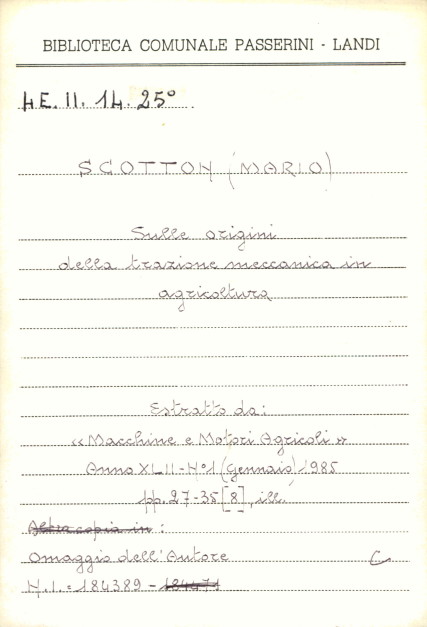 BIBLIOTECA COMUNALE PASSERINI - LANDI
4E. II. 14. 25°
SCOTTON (MARIO)
Sulle origini
della trazione meccanica in
agricoltura
Estratto da:
«Macchine e Motori Agricoli»
Anno XLII - N°1 (Gennaio) 1985
pp. 27-35 [8], ill.
Altra copia in :
Omaggio dell'Autore C
N.I. : 184389 - 184471